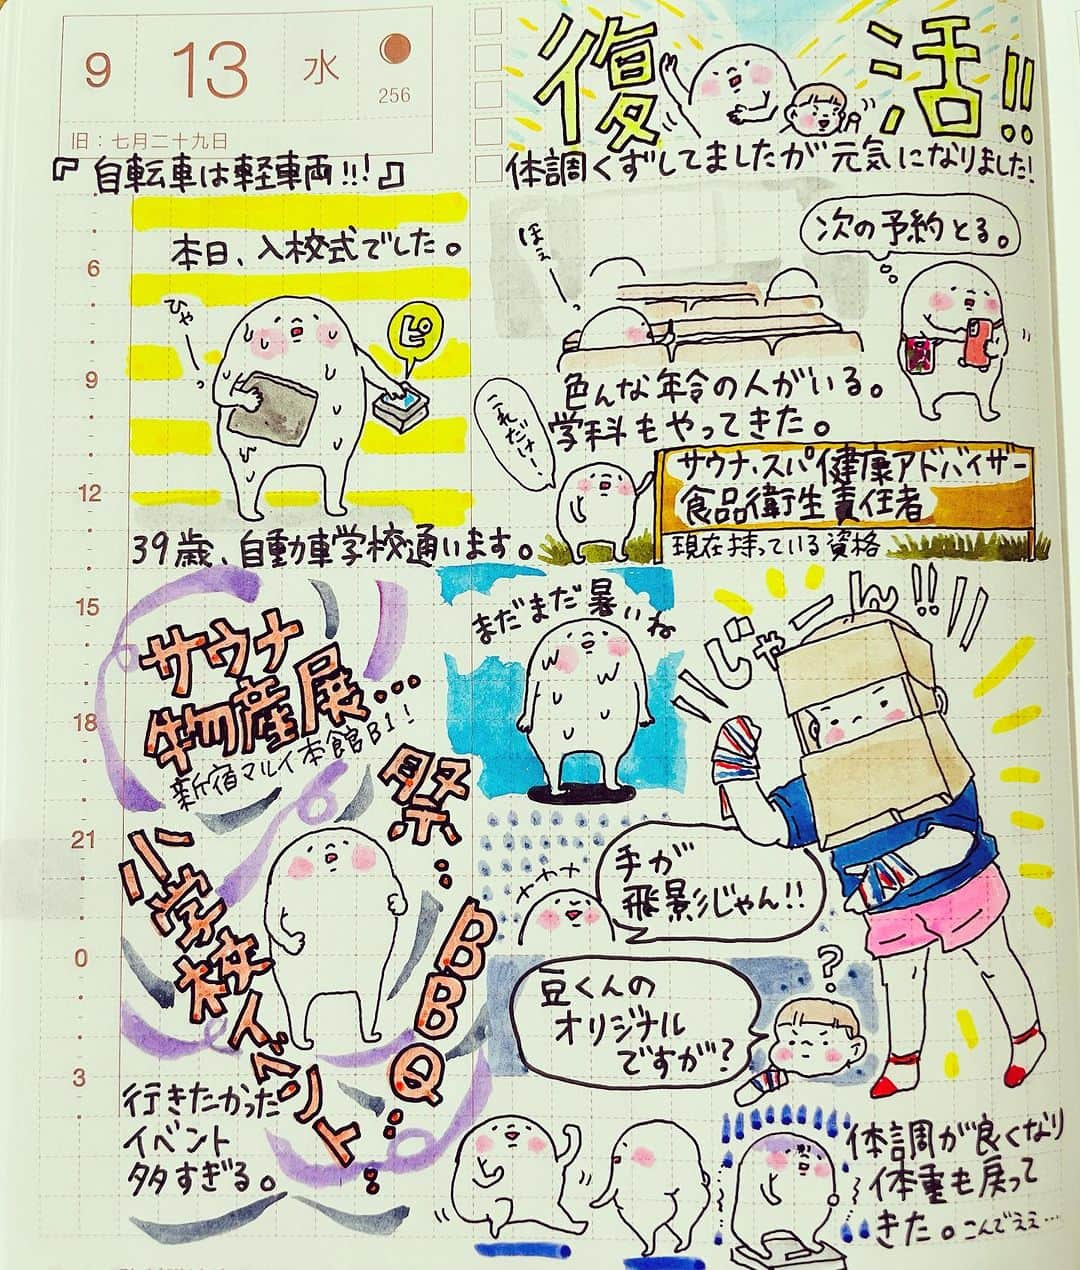 9 13 水
256
旧：七月二十九日
復活!!
体調くずしてましたが元気になりました!
『自転車は軽車両!!!』
本日、入校式でした。
ひゃーっ
ピ
39歳、自動車学校通います。
次の予約とる。
色んな年令の人がいる。
学科もやってきた。
これだけー
サウナ・スパ健康アドバイザー
食品衛生責任者
現在持っている資格
6
9
12
15
18
21
0
3
サウナ
物産展…
新宿マルイ本館B1!
祭…
BBQ…
小学校イベント…
行きたかった
イベント
多すぎる。
まだまだ暑いね
じゃーん!!
手が
飛影じゃん!!
豆くんの
オリジナル
ですが?
?
体調が良くなり
体重も戻って
きた。こんでええ…